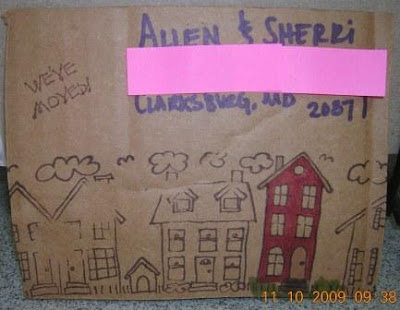 ALLEN & SHERRI
WE'VE
MOVED!
CLARKSBURG, MD 20871
11 10 2009 09 38